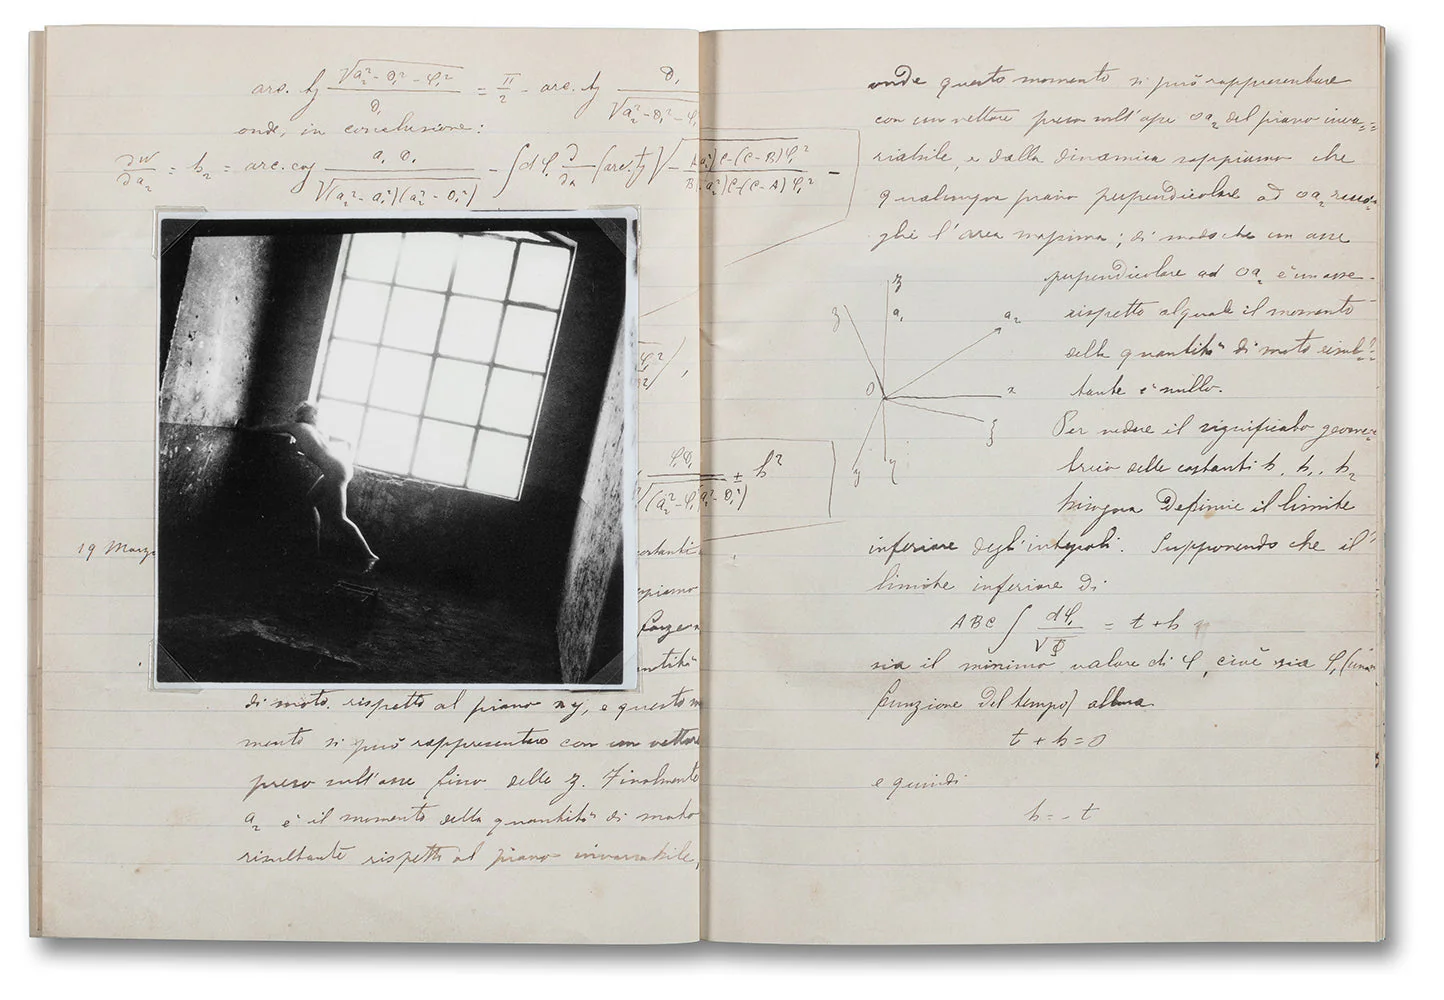 arc. tg √(a₂² - Θ₁² - φ₁²) / Θ₁ = π/2 - arc. tg Θ₁ / √(a₂² - Θ₁² - φ₁
onde, in conclusione:
∂W/∂a₂ = h₂ = arc. cos a₁ Θ₁ / √(a₂² - a₁²)(a₂² - Θ₁²) - ∫ dφ₁ ∂/∂a₂ (arc. tg √ - A a₂² C - (C - B) φ₁² / B a₂² C - (C - A) φ₁² -
± h²
19 Marzo
di moto rispetto al piano x y, e questo m
mento si può rappresentare con un vettore
preso sull'asse fisso delle z. Finalmente
a₂ è il momento della quantità di moto
risultante rispetto al piano invariabile,
onde questo momento si può rappresentare
con un vettore preso sull'asse oa₂ del piano inva=
riabile, e dalla dinamica sappiamo che
qualunque piano perpendicolare ad oa₂
ghi l'area massima; di modo che un asse
perpendicolare ad oa₂ è un asse
rispetto al quale il momento
della quantità di moto risul=
tante è nullo.
z
a₁
a₂
ζ
O
x
ξ
y
η
Per vedere il significato geome=
trico delle costanti h, h₁, h₂
bisogna definire il limite
inferiore degl'integrali. Supponendo che il
limite inferiore di
ABC ∫ dφ₁ / √Φ = t + h
sia il minimo valore di φ, cioè sia φ₁ (una
funzione del tempo) allora
t + h = 0
e quindi
h = - t